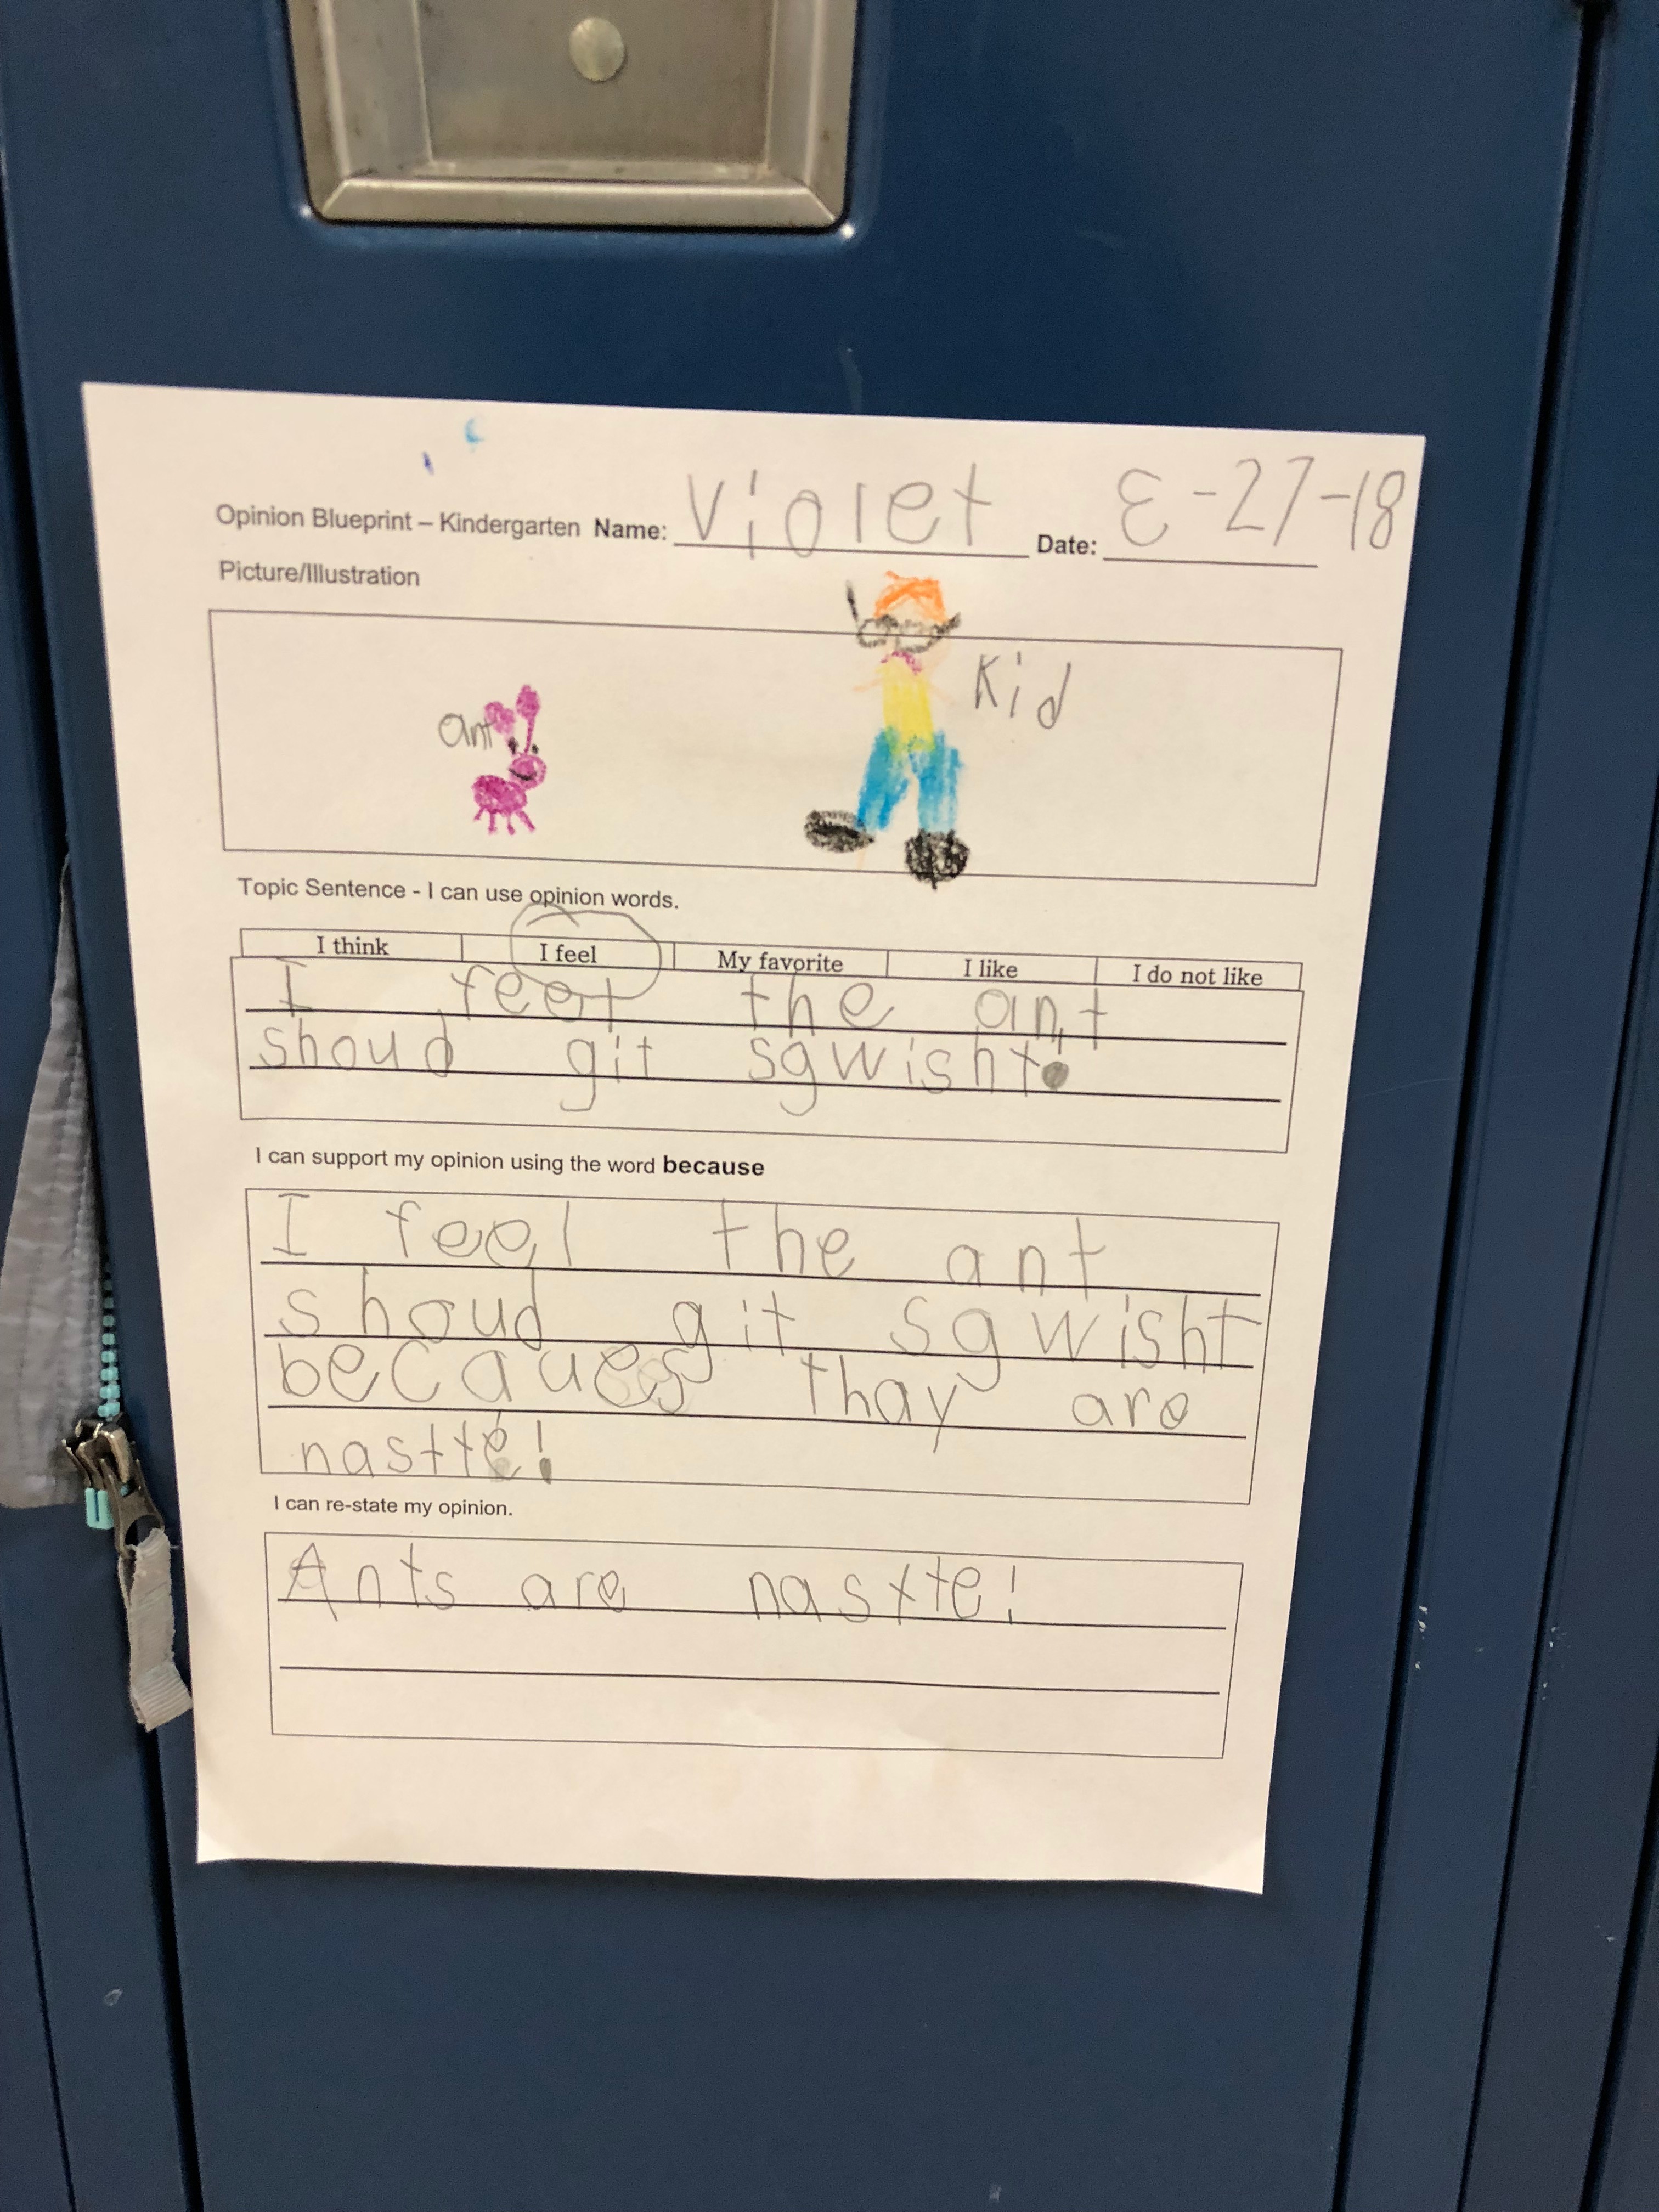 Opinion Blueprint – Kindergarten Name: Violet Date: 3-27-18
Picture/Illustration
ant
Kid
Topic Sentence - I can use opinion words.
I think I feel My favorite I like I do not like
I feel the ant
shoud git sqwisht!
I can support my opinion using the word because
I feel the ant
shoud git sqwisht
becaues thay are
nastte!
I can re-state my opinion.
Ants are nastte!